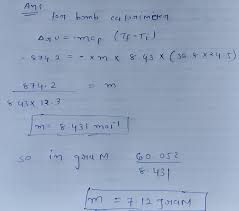 Ans
for bomb calorimeter
ΔrU = -mcp (Tf-Ti)
- 874.2 = - x m x 8.43 x (36.8 x 24.5)
874.2 / 8.43 x 12.3 = m
m = 8.431 mol-1
so in gram 60.052 / 8.431
m = 7.12 gram